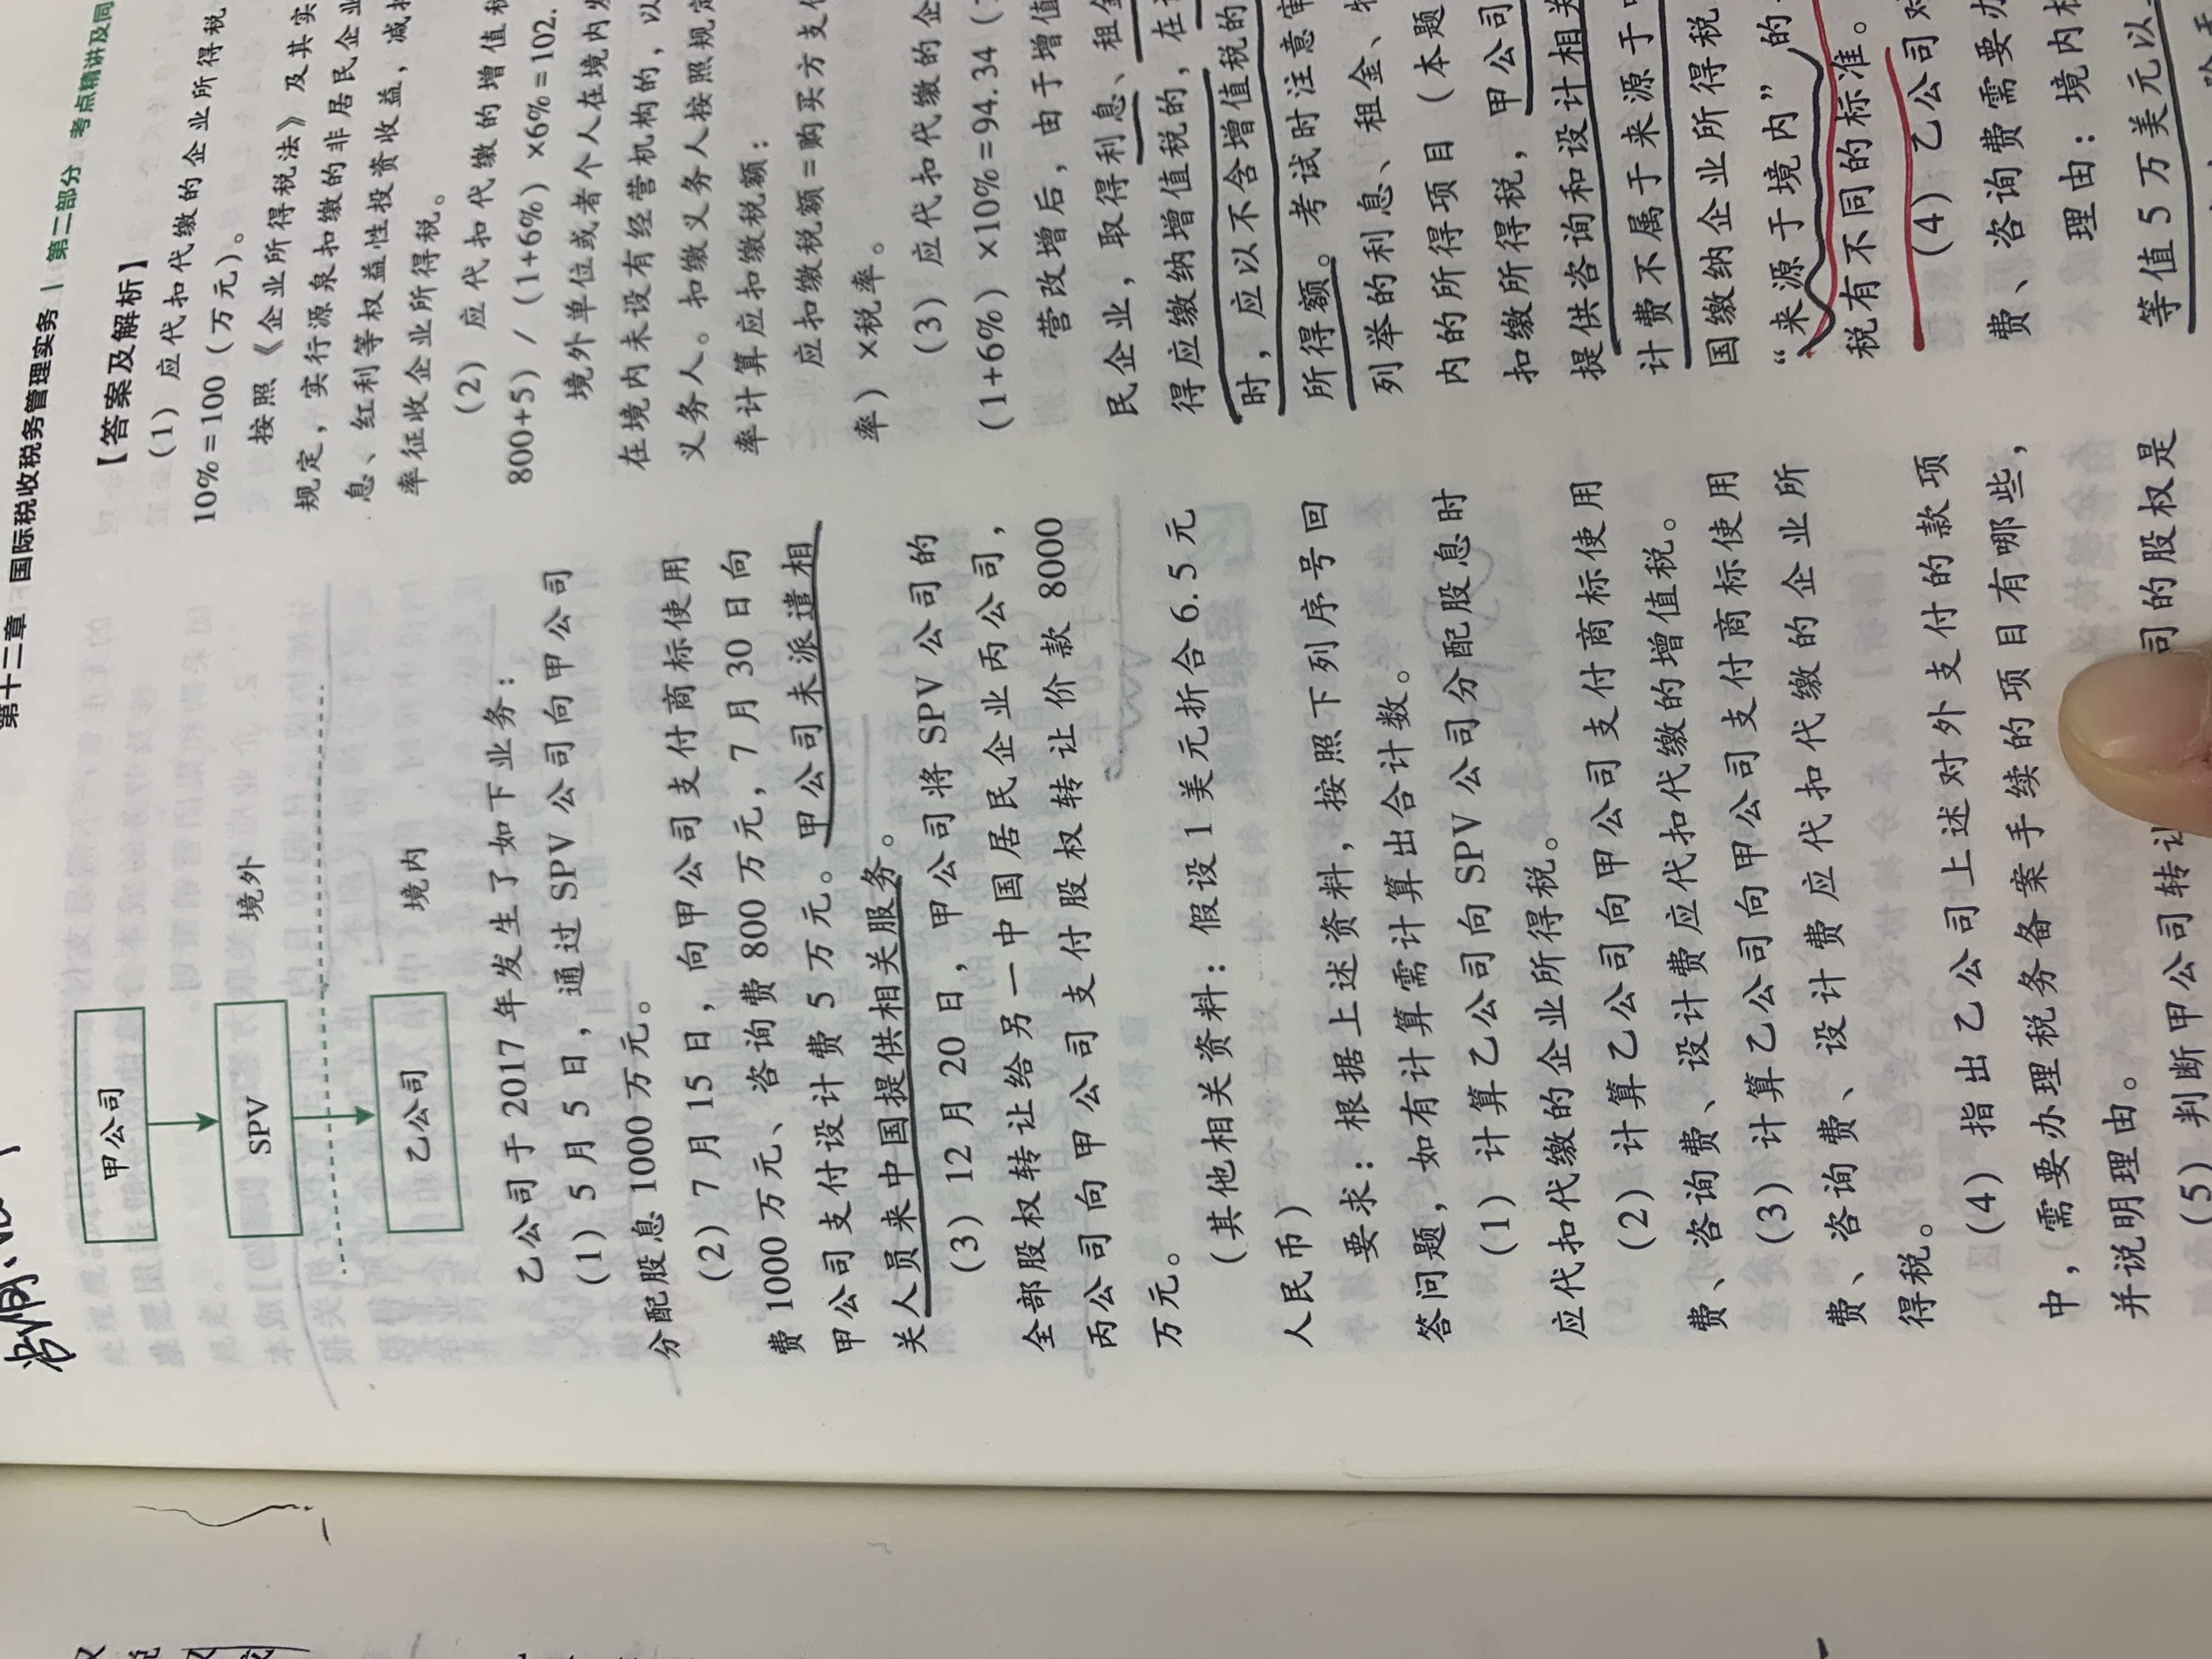 第十二章 国际税收税务管理实务 | 第二部分 考点精讲及同
甲公司
SPV
境外
乙公司
境内
乙公司于 2017 年发生了如下业务：
（1）5 月 5 日，通过 SPV 公司向甲公司
分配股息 1000 万元。
（2）7 月 15 日，向甲公司支付商标使用
费 1000 万元、咨询费 800 万元，7 月 30 日向
甲公司支付设计费 5 万元。甲公司未派遣相
关人员来中国提供相关服务。
（3）12 月 20 日，甲公司将 SPV 公司的
全部股权转让给另一中国居民企业丙公司，
丙公司向甲公司支付股权转让价款 8000
万元。
（其他相关资料：假设 1 美元折合 6.5 元
人民币）
要求：根据上述资料，按照下列序号回
答问题，如有计算需计算出合计数。
（1）计算乙公司向 SPV 公司分配股息时
应代扣代缴的企业所得税。
（2）计算乙公司向甲公司支付商标使用
费、咨询费、设计费应代扣代缴的增值税。
（3）计算乙公司向甲公司支付商标使用
费、咨询费、设计费应代扣代缴的企业所
得税。
（4）指出乙公司上述对外支付的款项
中，需要办理税务备案手续的项目有哪些，
并说明理由。
（5）判断甲公司转让 司的股权是
【答案及解析】
（1）应代扣代缴的企业所得税
10%=100（万元）。
按照《企业所得税法》及其实
规定，实行源泉扣缴的非居民企业
息、红利等权益性投资收益，减按
率征收企业所得税。
（2）应代扣代缴的增值税
800+5）/（1+6%）×6%=102.
境外单位或者个人在境内发
在境内未设有经营机构的，以
义务人。扣缴义务人按照规定
率计算应扣缴税额：
应扣缴税额=购买方支付
率）×税率。
（3）应代扣代缴的企
（1+6%）×10%=94.34（
营改增后，由于增值
民企业，取得利息、租金
得应缴纳增值税的，在
时，应以不含增值税的
所得额。考试时注意审
列举的利息、租金、特
内的所得项目（本题
扣缴所得税，甲公司
提供咨询和设计相关
计费不属于来源于中
国缴纳企业所得税
“来源于境内”的
税有不同的标准。
（4）乙公司对
费、咨询费需要办
理由：境内机
等值 5 万美元以